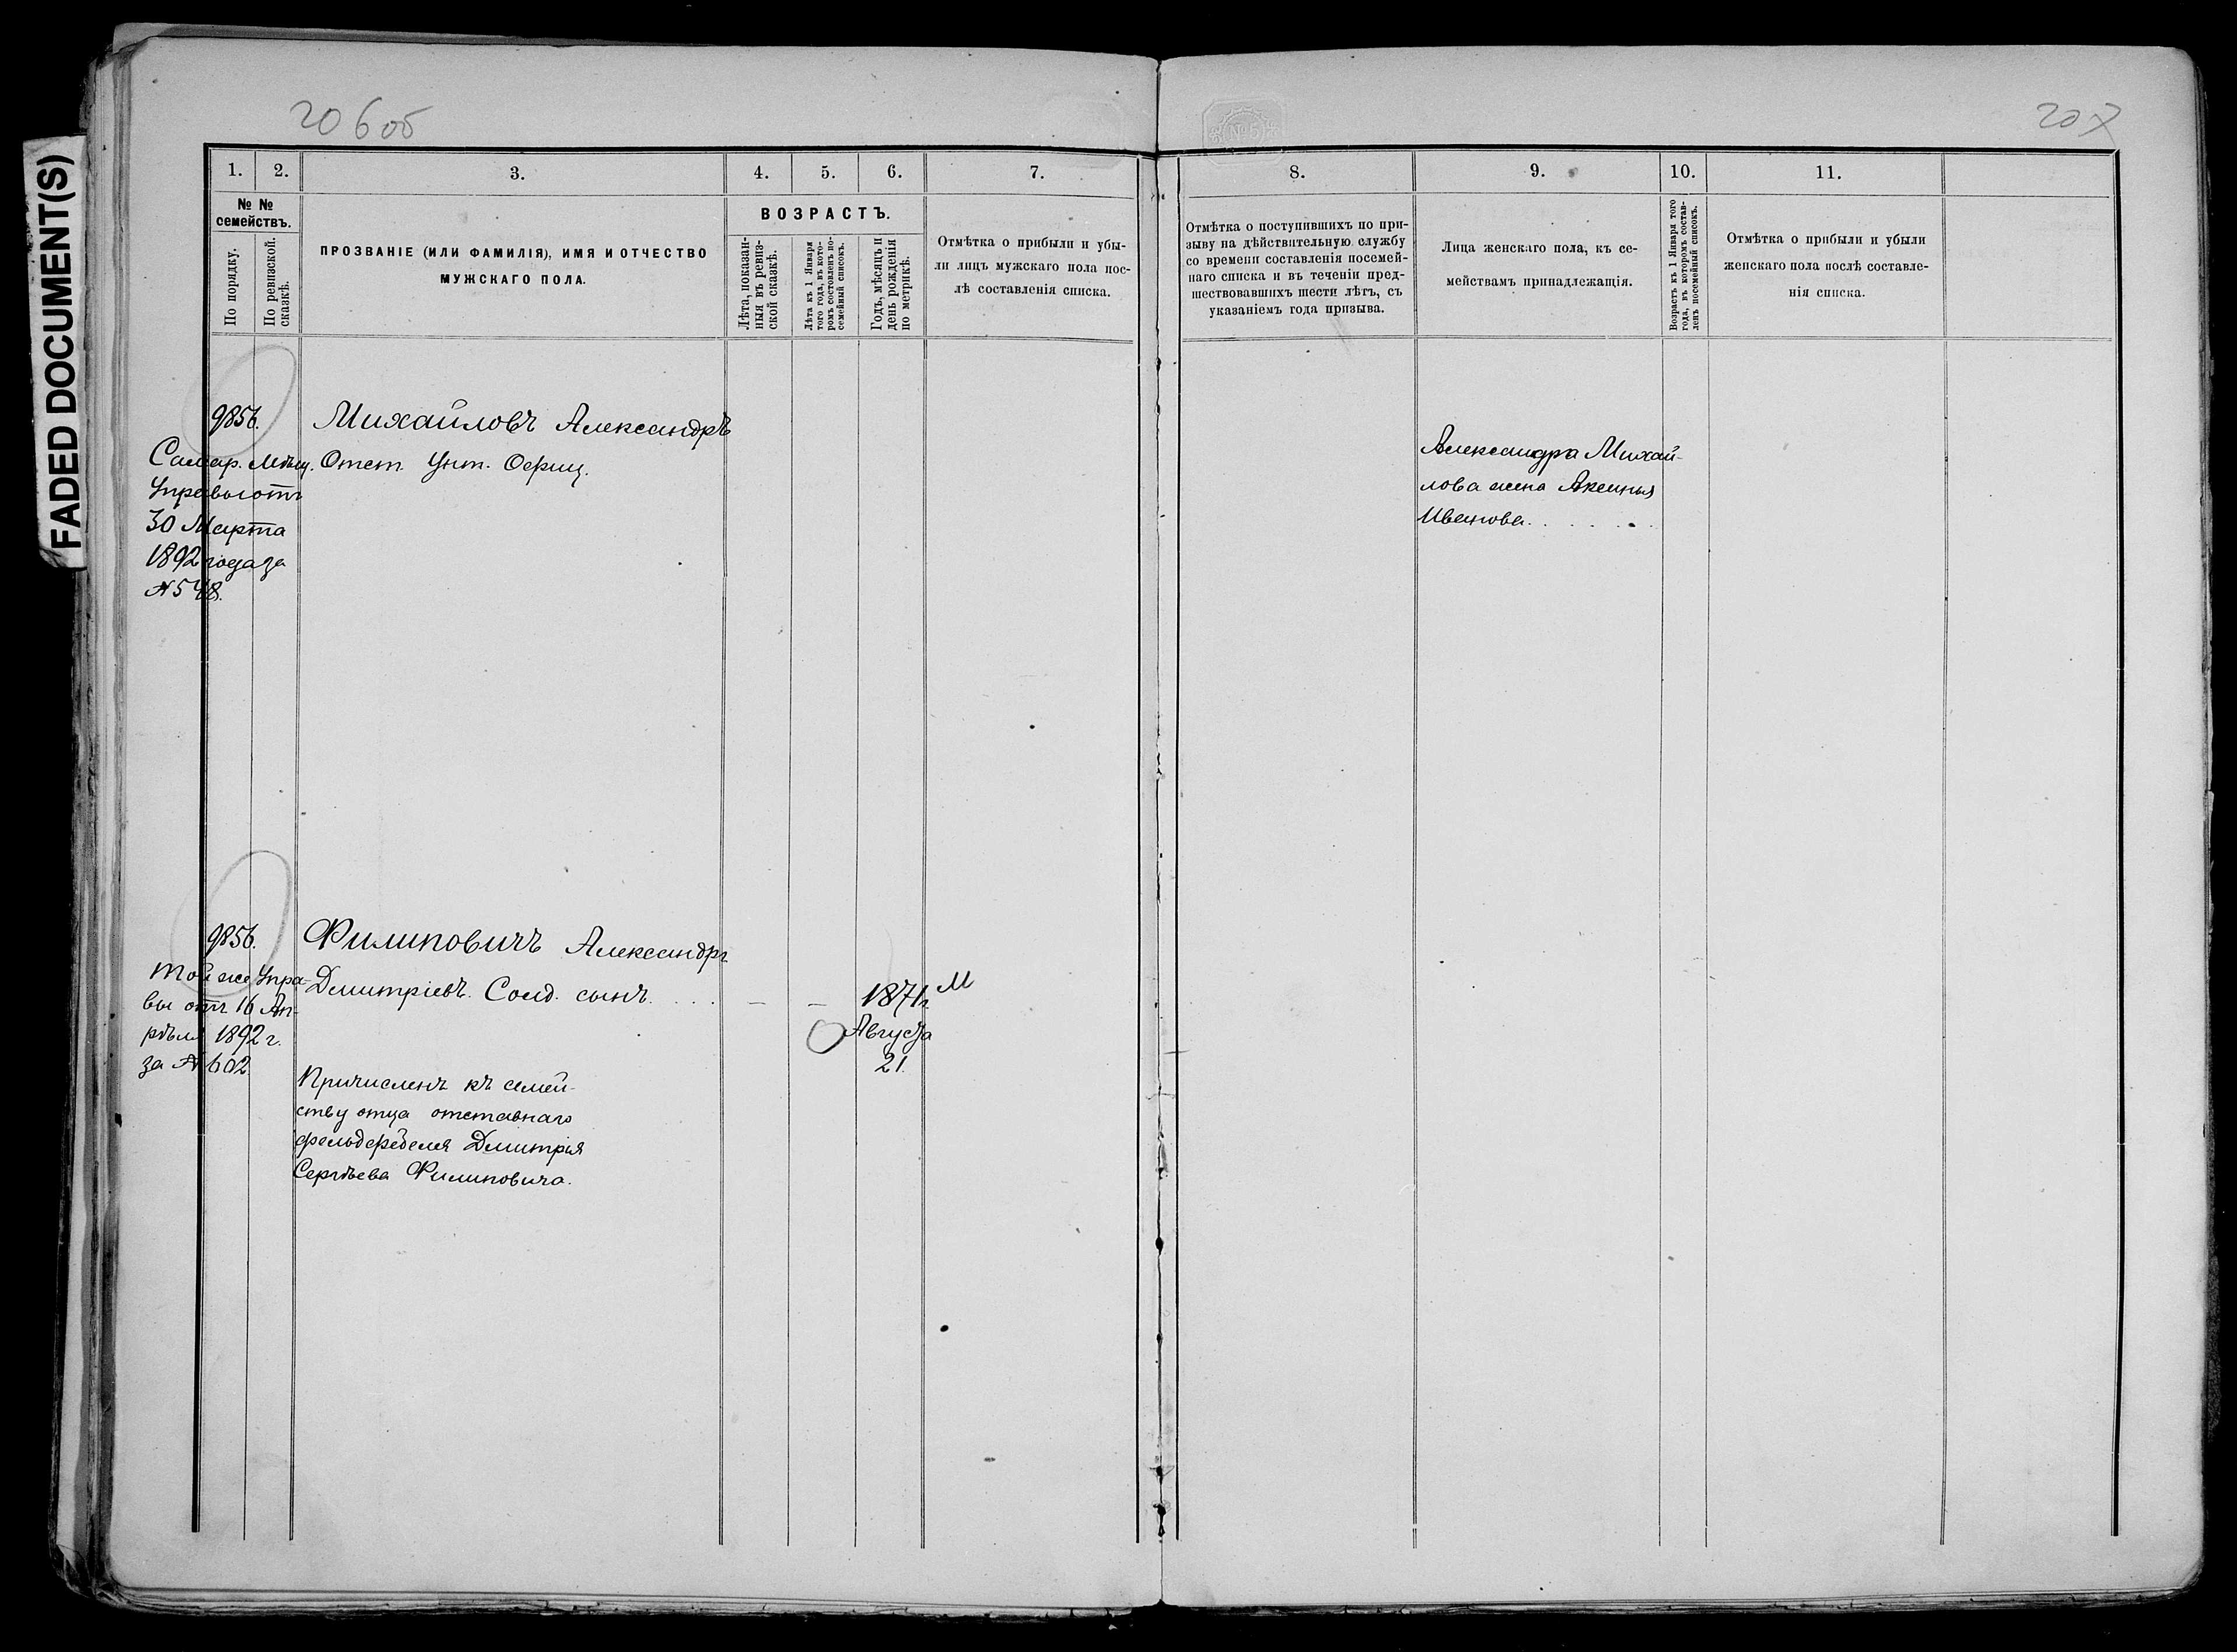 FADED DOCUMENT(S)
206 об
207
№ 5
1.
2.
3.
4.
5.
6.
7.
8.
9.
10.
11.
№ №
семействъ.
По порядку.
По ревизской.
сказкѣ.
ПРОЗВАНІЕ (ИЛИ ФАМИЛІЯ), ИМЯ И ОТЧЕСТВО
МУЖСКАГО ПОЛА.
ВОЗРАСТЪ.
Лѣта, показан-
ныя въ ревиз-
ской сказкѣ.
Лѣта къ 1 Января
того года, въ кото-
ромъ составленъ по-
семейный списокъ.
Годъ, мѣсяцъ и
день рожденія
по метрикѣ.
Отмѣтка о прибыли и убы-
ли лицъ мужскаго пола пос-
лѣ составленія списка.
Отмѣтка о поступившихъ по при-
зыву на дѣйствительную службу
со времени составленія посемей-
наго списка и въ теченіи пред-
шествовавшихъ шести лѣтъ, съ
указаніемъ года призыва.
Лица женскаго пола, къ се-
мействамъ принадлежащія.
Возрастъ къ 1 Января того
года, въ которомъ состав-
ленъ посемейный списокъ.
Отмѣтка о прибыли и убыли
женскаго пола послѣ составле-
нія списка.
9856.
Самар. Мѣщ.
Управы отъ
30 Марта
1892 года за
№ 548.
Михайловъ Александръ
Отст. Унт. Офиц.
Александра Михай-
лова жена Аксинья
Иванова. . . . . .
9856.
той же Упра-
вы отъ 16 Ап-
рѣля 1892 г.
за № 602
Филиповичъ Александръ
Дмитріевъ. Солд. сынъ. . . .
— — 1871 г. М
Августа
21.
Причисленъ къ семей-
ству отца отставнаго
фельдфебеля Дмитрія
Сергѣева Филиповича.